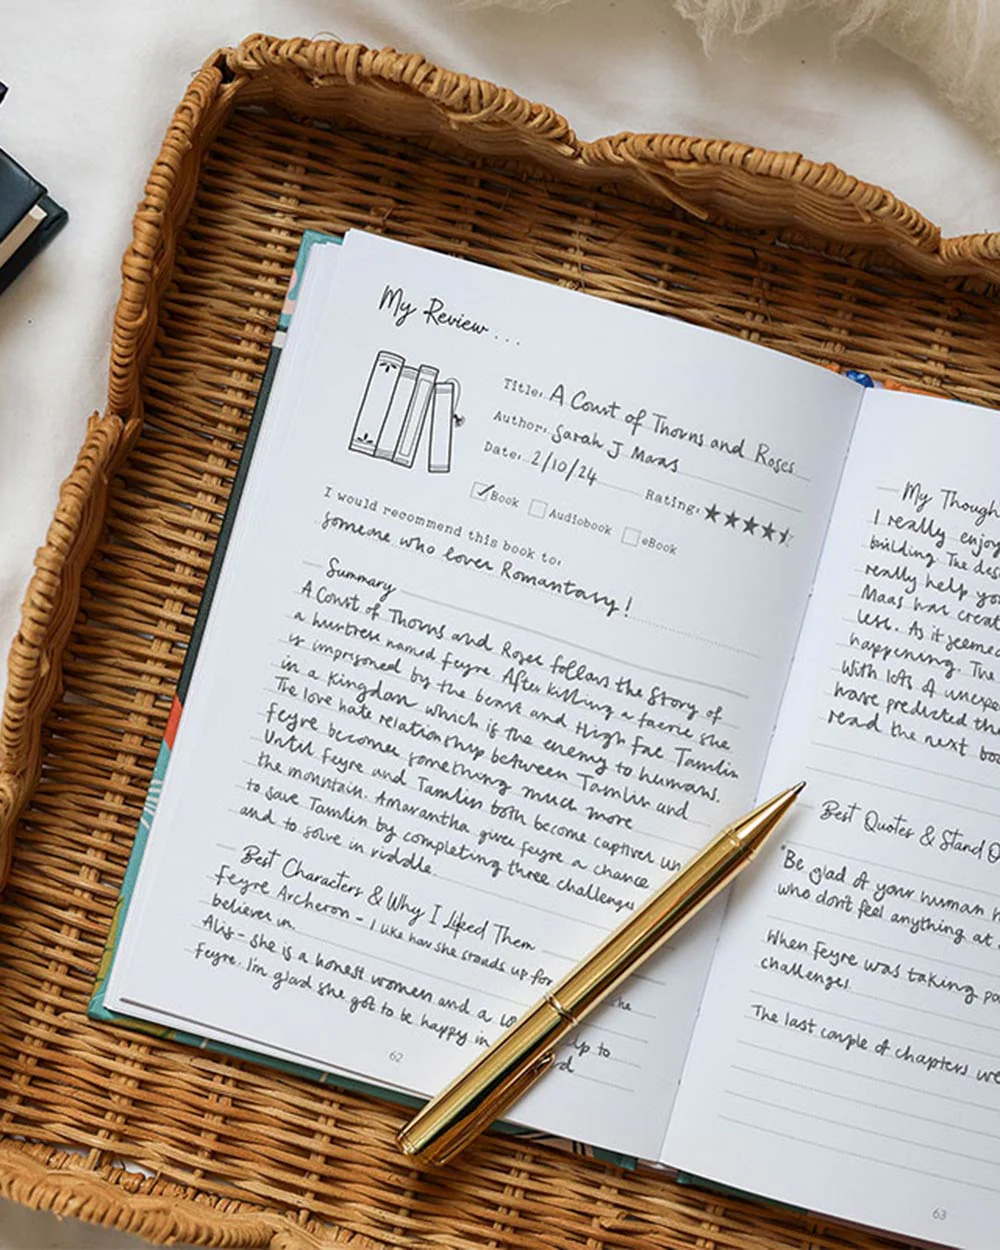 My Review ...
Title: A Court of Thorns and Roses
Author: Sarah J Maas
Date: 2/10/24 Rating:
Book Audiobook eBook
I would recommend this book to:
someone who lover Romantasy!
Summary
A Court of Thorns and Roses follows the story of
a huntress named feyre. After killing a faerie she
is imprisoned by the beast and High Fae Tamlin
in a Kingdom which is the enemy to humans.
The love hate relationship between Tamlin and
feyre becomes something much more
Until feyre and Tamlin both become captives un
the mountain. Amarantha gives feyre a chance
to save Tamlin by completing three challenges
and to solve in riddle.
Best Characters & Why I Liked Them
feyre Archeron - I like how she stands up for he
believer in.
Alis - she is a honest women and a lo lp to
feyre. I'm glad she got to be happy in rd
62
My Though
I really enjoy
building. The des
really help yo
Maas has creat
less. As it seemed
happening. The
With lots of unexpe
have predicted th
read the next boo
Best Quotes & Stand O
"Be glad of your human h
who don't feel anything at
When feyre was taking pa
challenges.
The last couple of chapters we
63